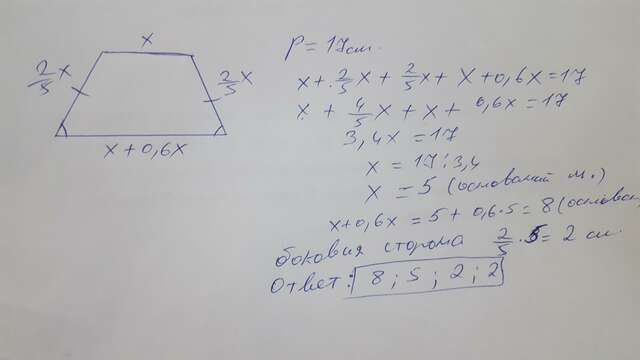 x
2/5 x
2/5 x
x + 0,6x
P = 17см.
x + 2/5 x + 2/5 x + x + 0,6x = 17
x + 4/5 x + x + 0,6x = 17
3,4x = 17
x = 17 : 3,4
x = 5 (оснований м.)
x + 0,6x = 5 + 0,6·5 = 8 (основан
боковия сторома 2/5 · 5 = 2 см.
Ответ: 8 ; 5 ; 2 ; 2